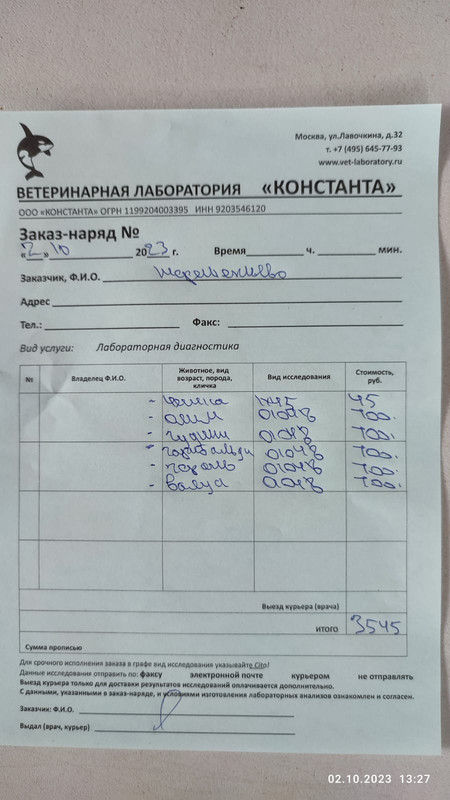 Москва, ул.Лавочкина, д.32
т. +7 (495) 645-77-93
www.vet-laboratory.ru
ВЕТЕРИНАРНАЯ ЛАБОРАТОРИЯ «КОНСТАНТА»
ООО «КОНСТАНТА» ОГРН 1199204003395 ИНН 9203546120
Заказ-наряд №
«2» 10 2023 г. Время ч. мин.
Заказчик, Ф.И.О.
Адрес
Тел.: Факс:
Вид услуги: Лабораторная диагностика
№ Владелец Ф.И.О. Животное, вид возраст, порода, кличка Вид исследования Стоимость, руб.
45
- 01048 700.
- Гудини 01048 700.
- Гарибальди 01048 700.
- 01048 700.
- 01048 700.
Выезд курьера (врача)
ИТОГО 3545
Сумма прописью
Для срочного исполнения заказа в графе вид исследования указывайте Cito!
Данные исследования отправить по: факсу электронной почте курьером не отправлять
Выезд курьера только для доставки результатов исследований оплачивается дополнительно.
С данными, указанными в заказ-наряде, и условиями изготовления лабораторных анализов ознакомлен и согласен.
Заказчик: Ф.И.О.
Выдал (врач, курьер)
02.10.2023 13:27